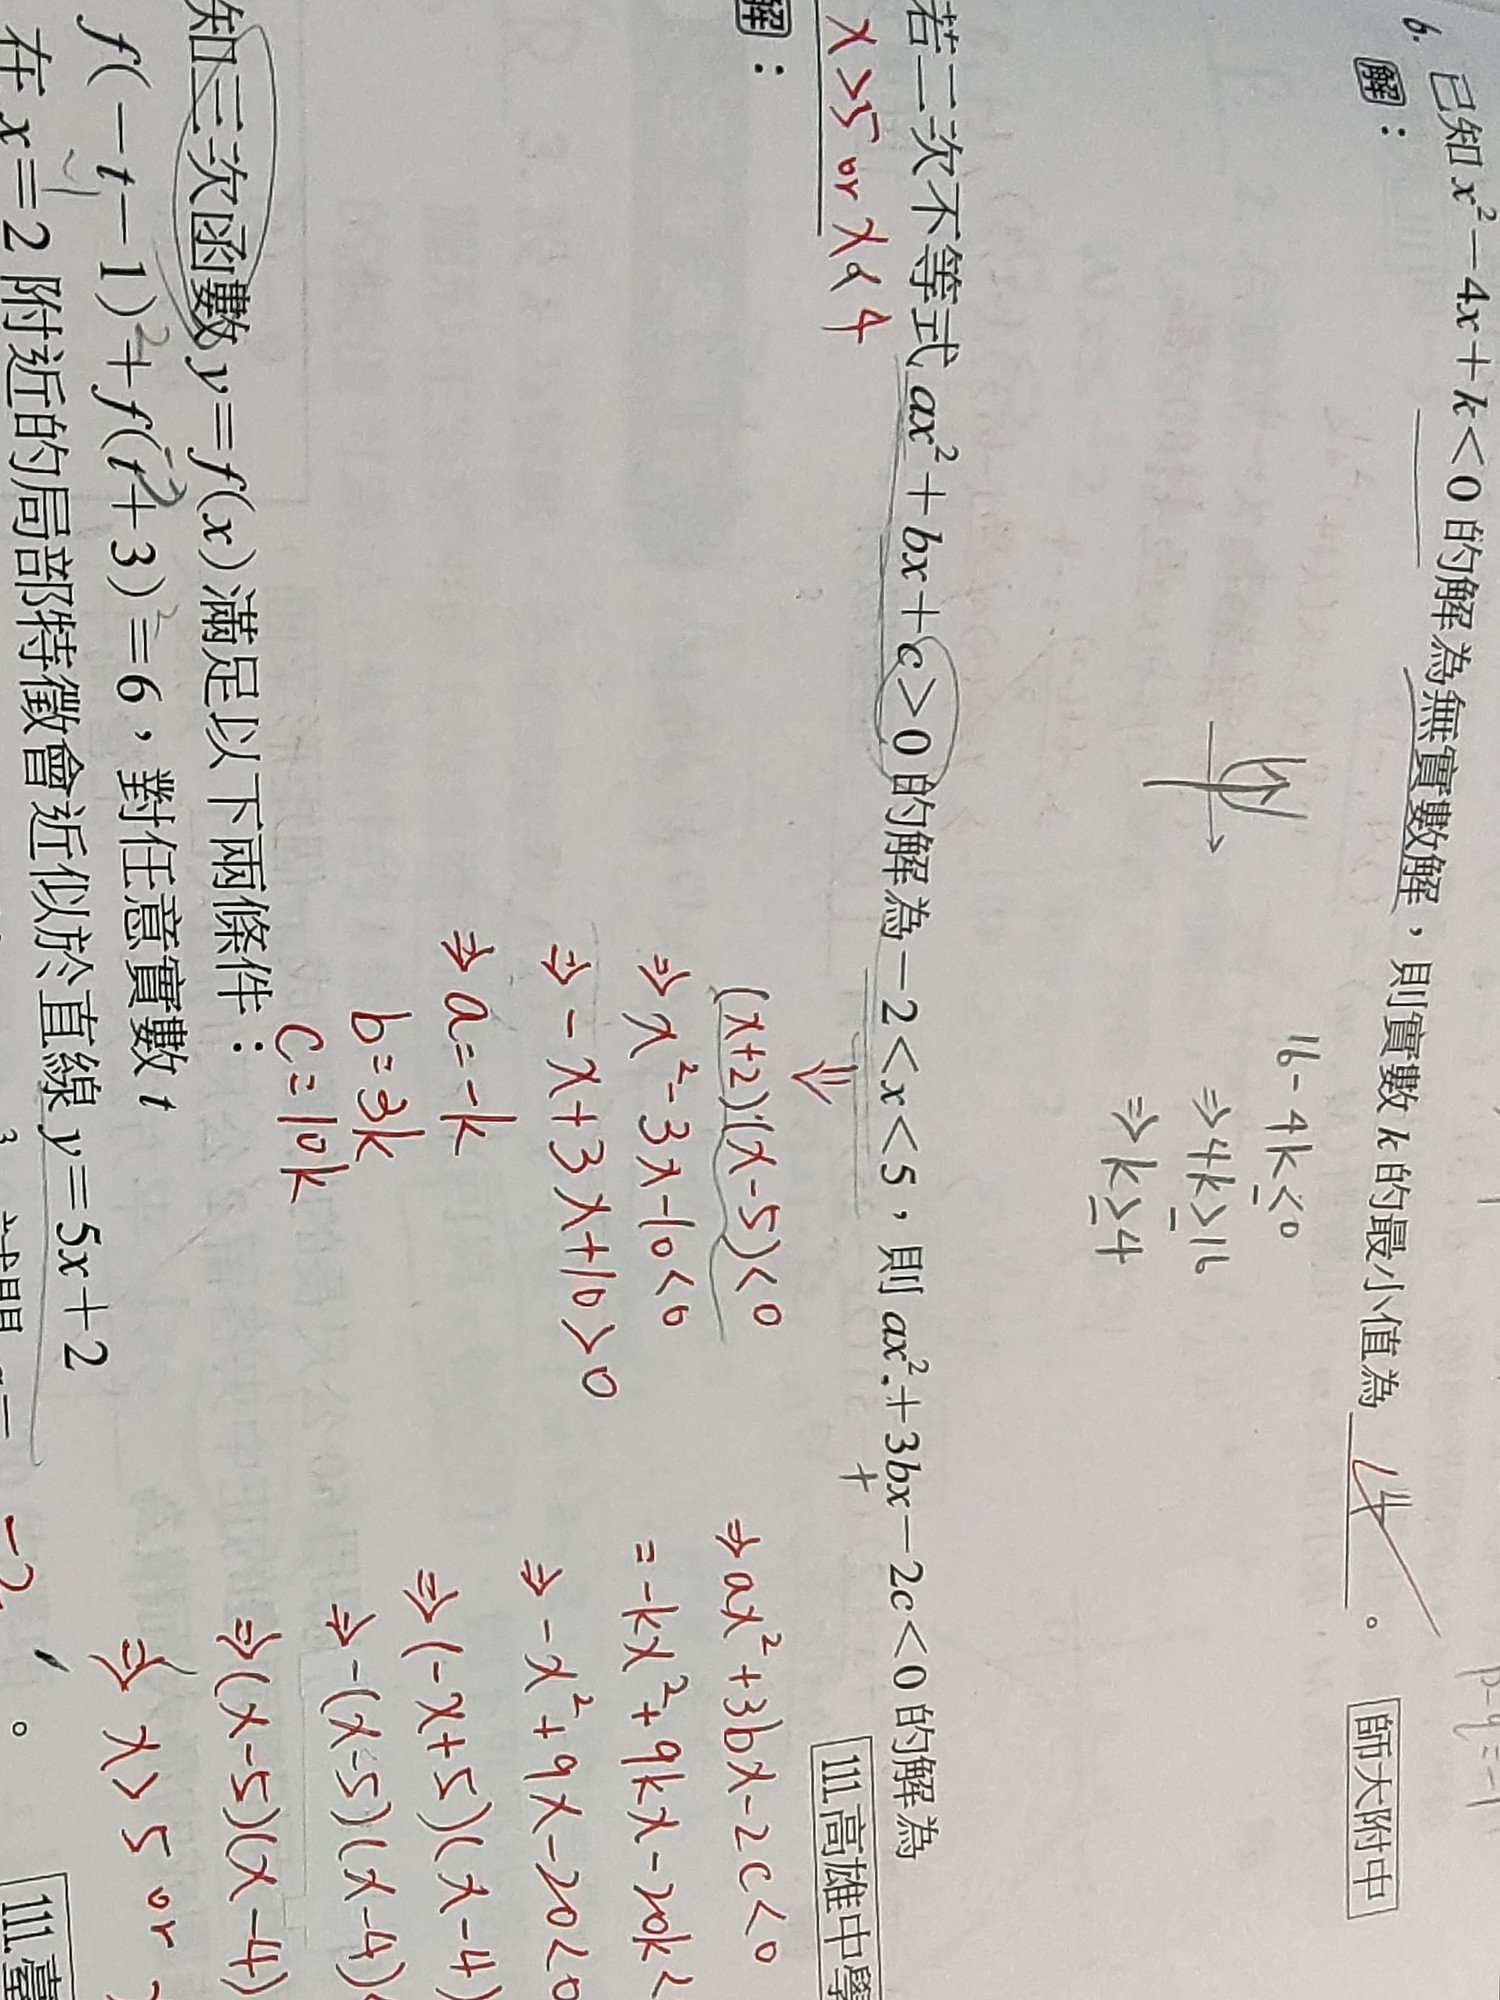 6. 已知 x²－4x＋k＜0 的解為無實數解，則實數 k 的最小值為 4 。 師大附中
解：
16－4k≤0
⇒4k≥16
⇒k≥4
若二次不等式 ax²＋bx＋c＞0 的解為－2＜x＜5，則 ax²＋3bx－2c＜0 的解為
x＞5 or x＜4
111.高雄中學
解：
⇓
(x+2)(x-5)<0
⇒ x²-3x-10<0
⇒ -x+3x+10>0
⇒ a=-k
b=3k
c=10k
⇒ ax²+3bx-2c<0
= -kx²+9kx-20k<
⇒ -x²+9x-20<0
⇒ (-x+5)(x-4)
⇒ -(x-5)(x-4)<
⇒ (x-5)(x-4)
⇒ x>5 or
知三次函數 y＝f(x) 滿足以下兩條件：
f(－t－1)＋f(t＋3)＝6，對任意實數 t
在 x＝2 附近的局部特徵會近似於直線 y＝5x＋2
。
111.臺